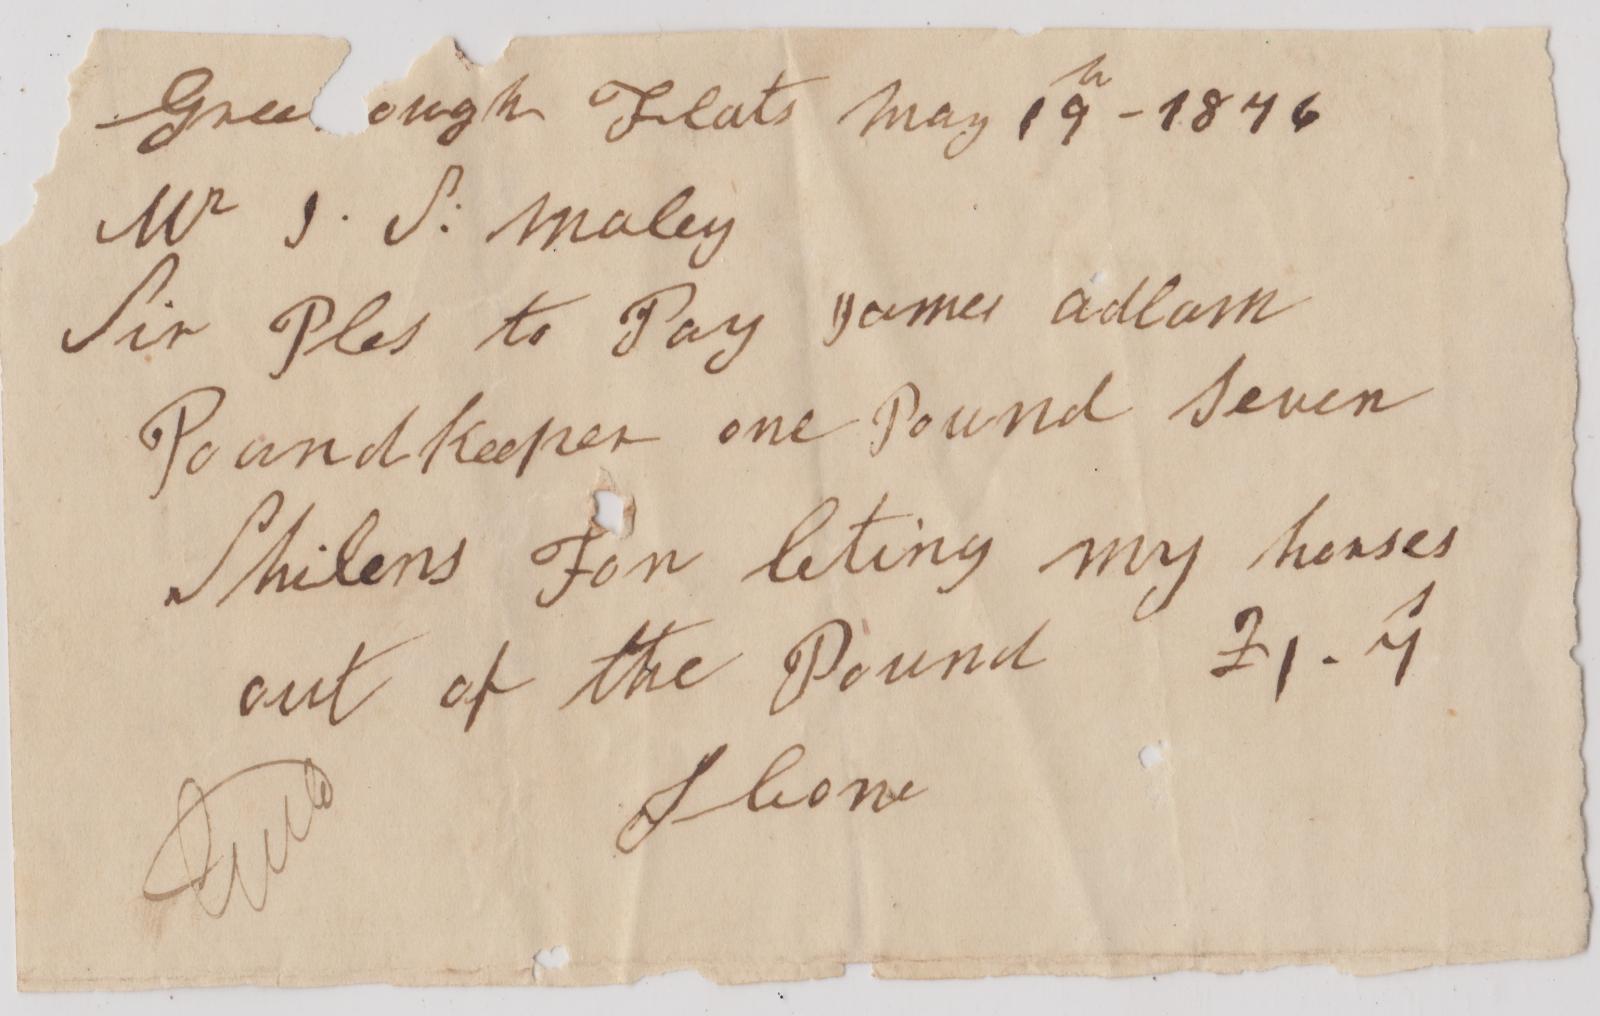 Gree ough Flats May 19h - 1876
Mr J. S. Maley
Sir Ples to Pay James adlam
Poundkeeper one Pound Seven
Shilens For leting my horses
out of the Pound £1. 7s